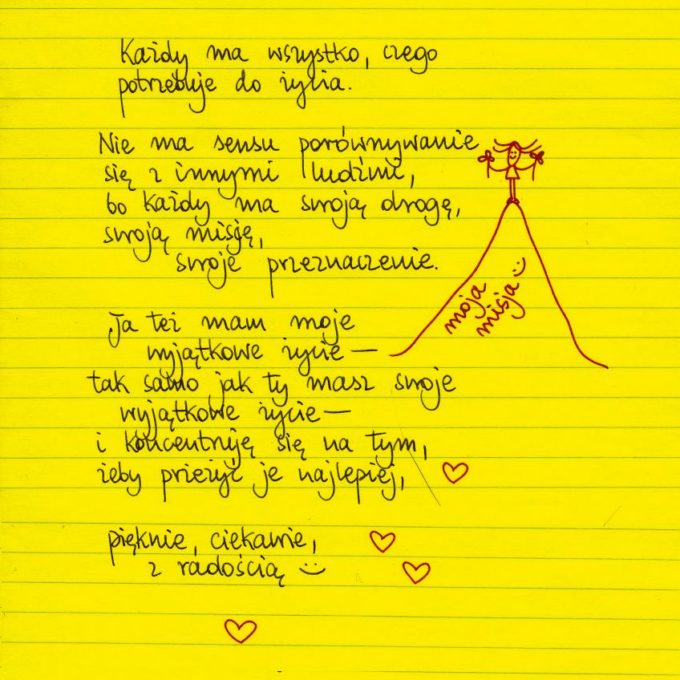 Każdy ma wszystko, czego
potrzebuje do życia.
Nie ma sensu porównywanie
się z innymi ludźmi,
bo każdy ma swoją drogę,
swoją misję,
swoje przeznaczenie.
moja
misja :)
Ja też mam moje
wyjątkowe życie —
tak samo jak ty masz swoje
wyjątkowe życie —
i koncentruję się na tym,
żeby przeżyć je najlepiej,
pięknie, ciekawie,
z radością :)